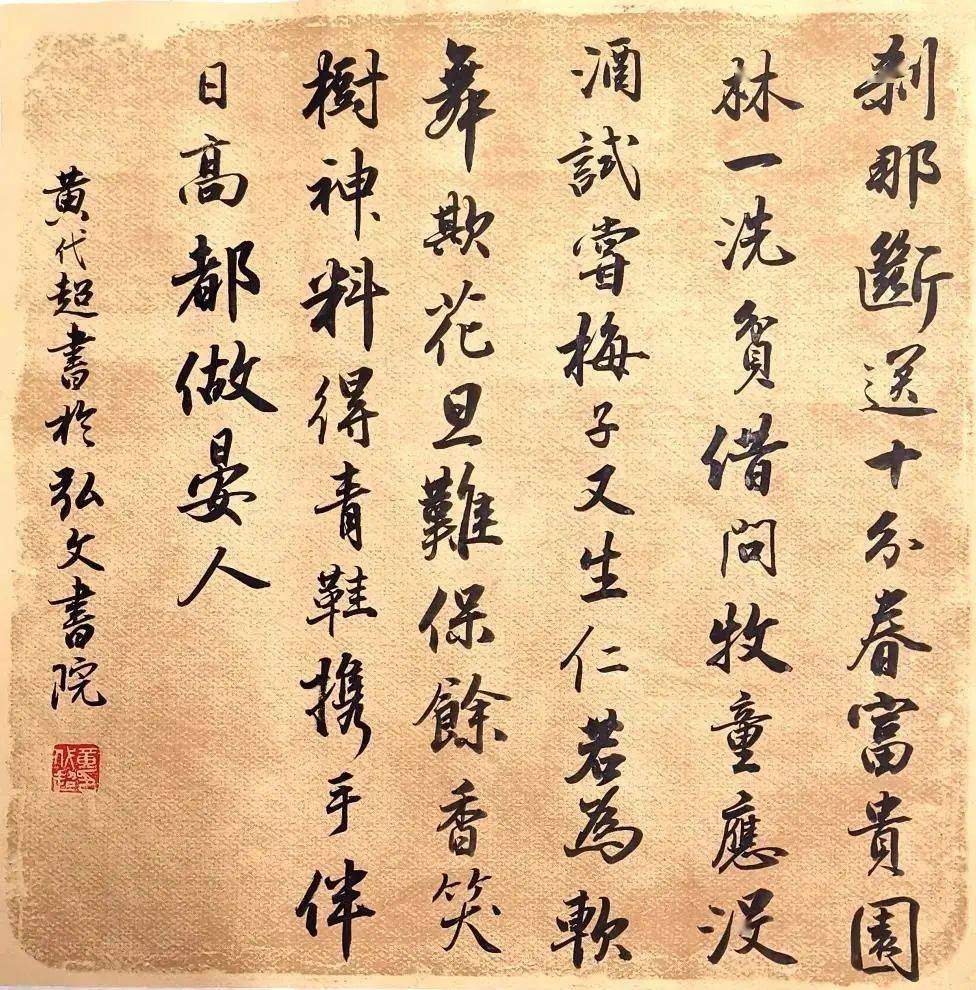 刹那斷送十分春富貴園
林一洗貧借問牧童應没
酒試嘗梅子又生仁若為軟
舞欺花旦難保餘香笑
樹神料得青鞋携手伴
日高都做晏人
黄代超書於弘文書院
黄代超印